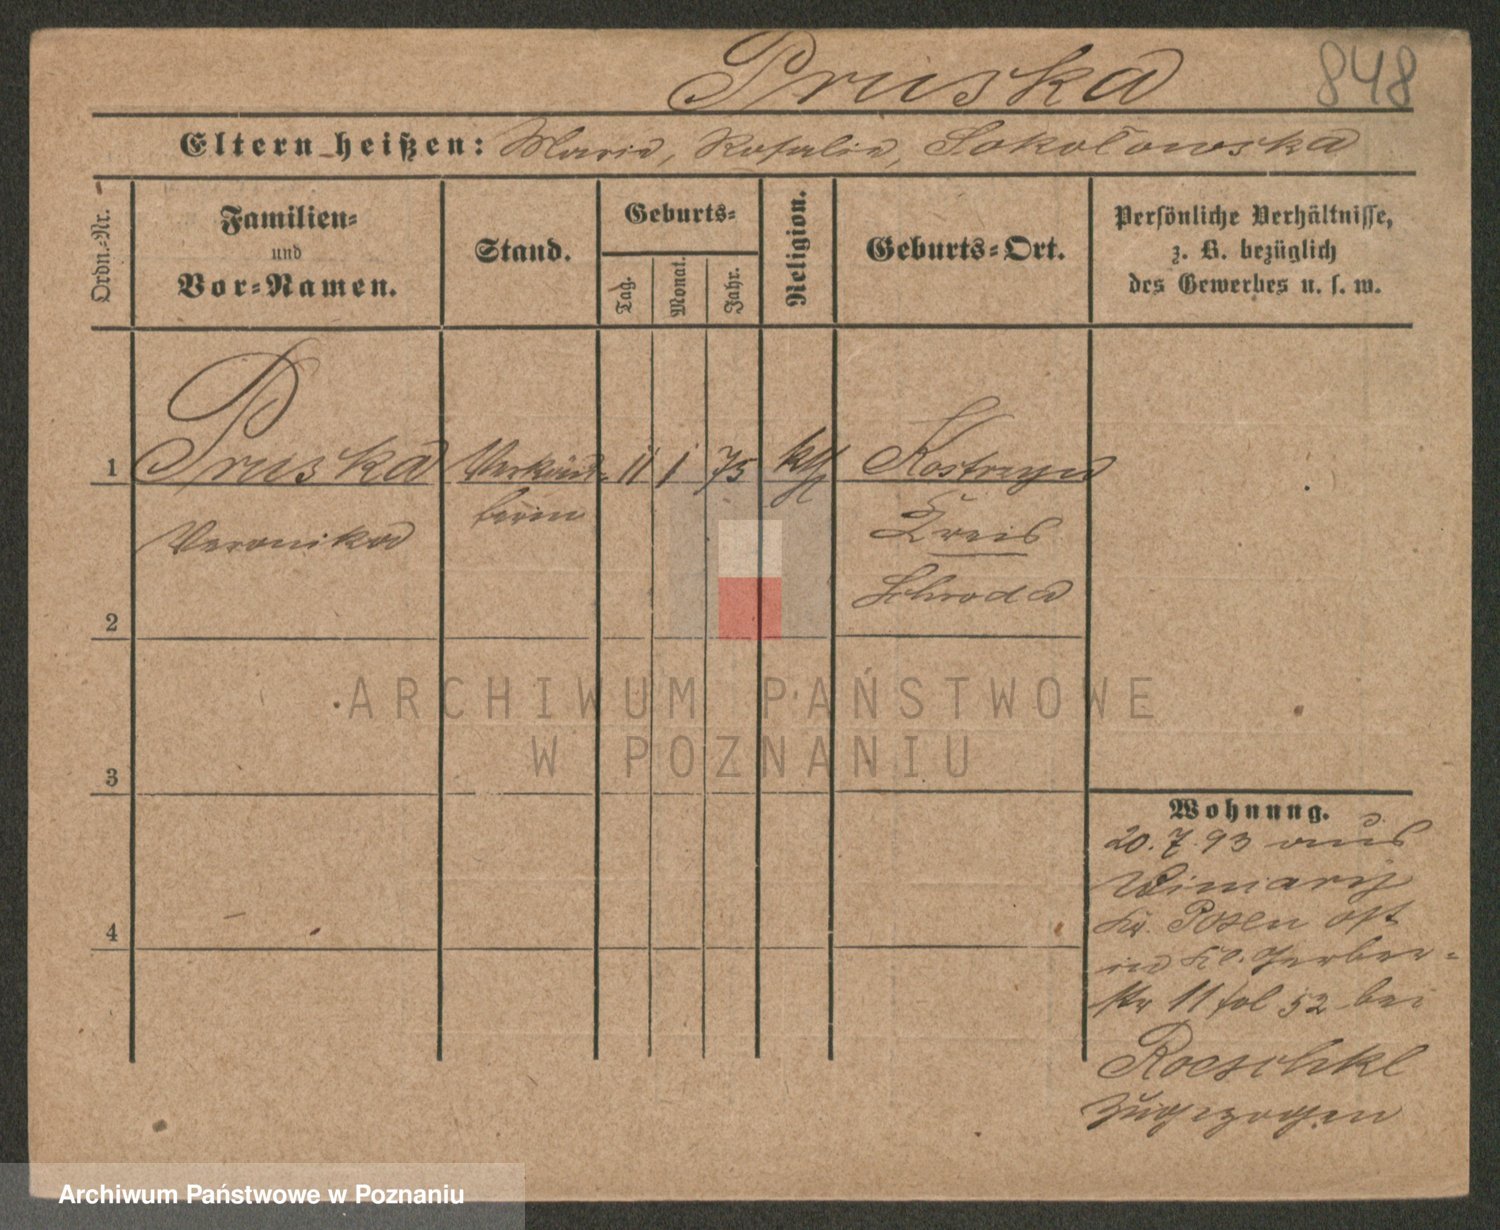 Pruska
848
Eltern heißen: Marie, Rosalie, Sokołowska
Ordn.-Nr.
Familien-
und
Vor-Namen.
Stand.
Geburts-
Tag.
Monat.
Jahr.
Religion.
Geburts-Ort.
Persönliche Verhältnisse,
z. B. bezüglich
des Gewerbes u. s. w.
1 Pruska Verkäuf- 11 1 75 kth Kostrzyn
Veronika ferin Kreis
Schroda
2
3
4
Wohnung.
20.7.93 aus
Winiary
Kr. Posen Ost
Kl. Gerber-
str 11 fol 52 bei
zugezogen
ARCHIWUM PAŃSTWOWE
W POZNANIU
Archiwum Państwowe w Poznaniu